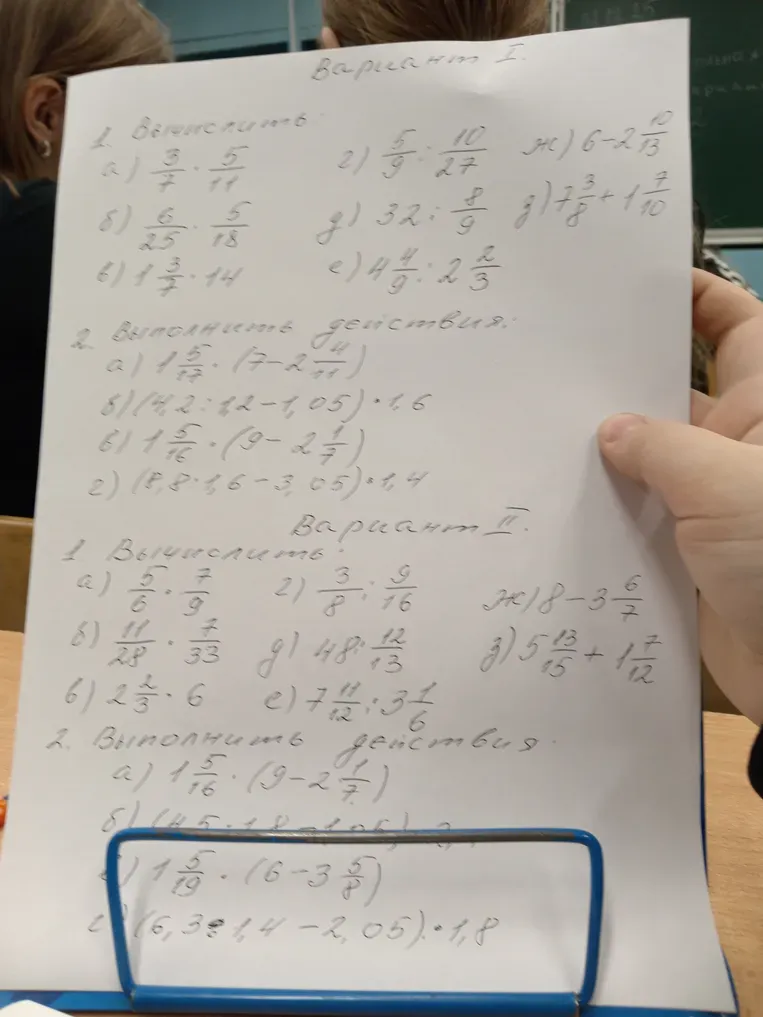 Вариант I.
1. Вычислить:
а) 3/7 · 5/11 г) 5/9 : 10/27 ж) 6 - 2 10/13
б) 6/25 · 5/18 д) 32 : 8/9 з) 7 3/8 + 1 7/10
в) 1 3/7 · 14 е) 4 4/9 : 2 2/3
2. Выполнить действия:
а) 1 5/17 · (7 - 2 4/11)
б) (4,2 : 1,2 - 1,05) · 1,6
в) 1 5/16 · (9 - 2 1/7)
г) (8,8 : 1,6 - 3,05) · 1,4
Вариант II.
1 Вычислить:
а) 5/6 · 7/9 г) 3/8 : 9/16 ж) 8 - 3 6/7
б) 11/28 · 7/33 д) 48 : 12/13 з) 5 13/15 + 1 7/12
в) 2 2/3 · 6 е) 7 11/12 : 3 1/6
2. Выполнить действия.
а) 1 5/16 · (9 - 2 1/7)
б) (4,5 : 1,8 - 1,05)
в) 1 5/19 · (6 - 3 5/8)
г) (6,3 : 1,4 - 2,05) · 1,8